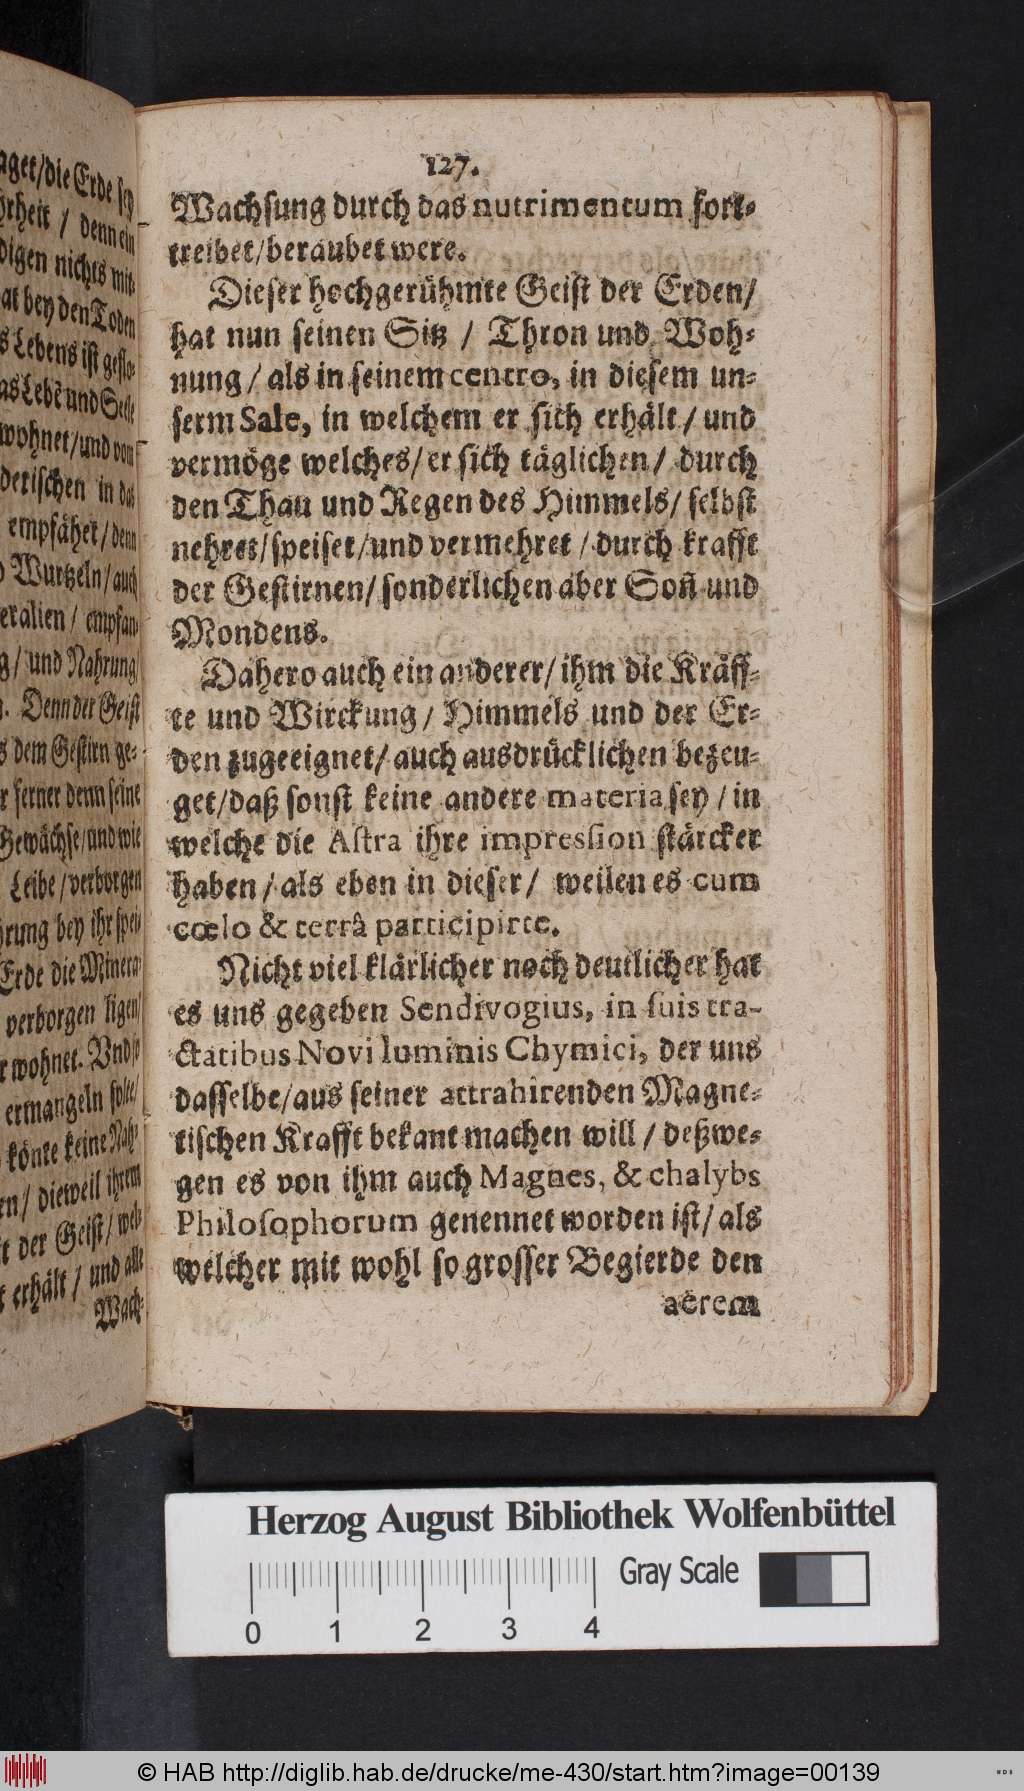 aget/die Erde sey
denn ein
digen nichts mit
at bey den Toden
s Lebens ist geflo-
wohnet/und vom
in das
empfähet/denn
Wurtzeln/auch
empfan-
g/ und Nahrung/
Denn der Geist
s dem Gestirn ge-
r ferner denn seine
Gewächse/und wie
Leibe/verborgen
hrung bey ihr spei-
Erde die Minera-
verborgen ligen/
r wohnet. Vnd so
ermangeln solte/
könte keine Nah-
en/ dieweil ihrem
der Geist/ wel-
erhält/ und alle
Wach-
127.
Wachsung durch das nutrimentum fort-
treibet/beraubet were.
Dieser hochgerühmte Geist der Erden/
hat nun seinen Sitz / Thron und Woh-
nung/ als in seinem centro, in diesem un-
serm Sale, in welchem er sich erhält/ und
vermöge welches/er sich täglichen/ durch
den Thau und Regen des Himmels/ selbst
nehret/speiset/und vermehret/durch krafft
der Gestirnen/sonderlichen aber Soñ und
Mondens.
Dahero auch ein anderer/ihm die Kräff-
te und Wirckung/ Himmels und der Er-
den zugeeignet/ auch ausdrücklichen bezeu-
get/daß sonst keine andere materia sey/in
welche die Astra ihre impression stärcker
haben/als eben in dieser/ weilen es cum
cœlo & terrâ participirte.
Nicht viel klärlicher noch deutlicher hat
es uns gegeben Sendivogius, in suis tra-
ctatibus Novi luminis Chymici, der uns
dasselbe/aus seiner attrahirenden Magne-
tischen Krafft bekant machen will/ deßwe-
gen es von ihm auch Magnes, & chalybs
Philosophorum genennet worden ist/als
welcher mit wohl so grosser Begierde den
aërem
Herzog August Bibliothek Wolfenbüttel
Gray Scale
0 1 2 3 4
© HAB http://diglib.hab.de/drucke/me-430/start.htm?image=00139
WDB